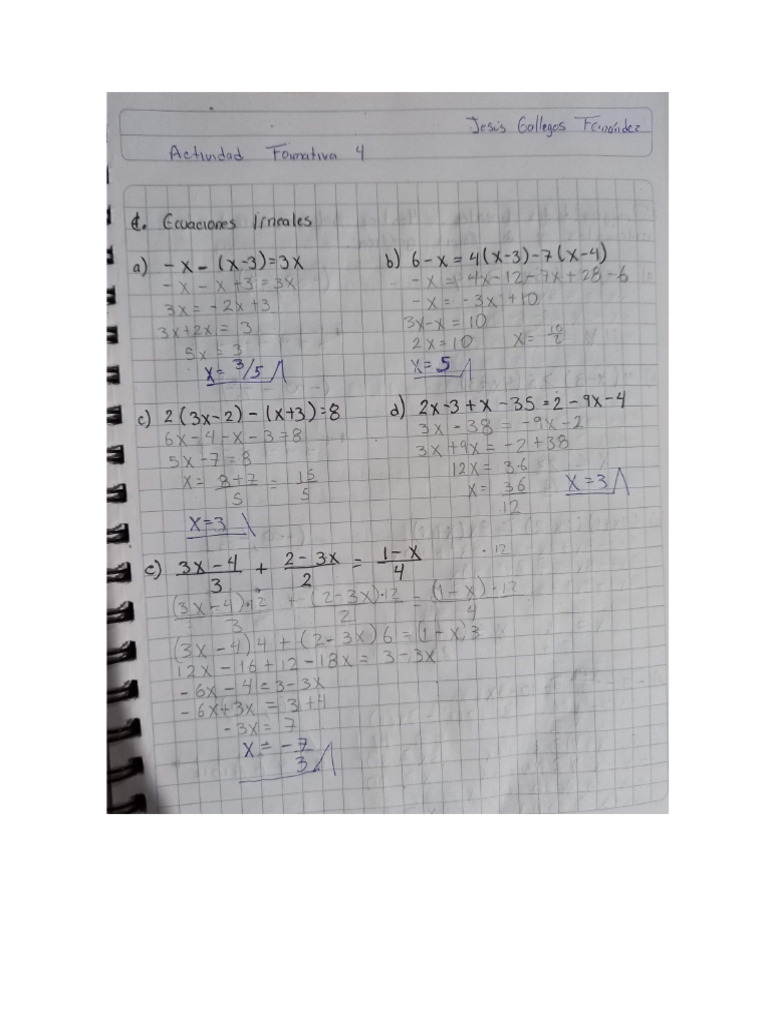 Jesús Gallegos Fernández
Actividad Formativa 4
1. Ecuaciones lineales
a) -x-(x-3)=3x
-x-x+3=3x
3x=-2x+3
3x+2x=3
5x=3
x=3/5
b) 6-x=4(x-3)-7(x-4)
-x=4x-12-7x+28-6
-x=-3x+10
3x-x=10
2x=10 x=10/2
x=5
c) 2(3x-2)-(x+3)=8
6x-4-x-3=8
5x-7=8
x=8+7/5=15/5
x=3
d) 2x-3+x-35=2-9x-4
3x-38=-9x-2
3x+9x=-2+38
12x=36
x=36/12 x=3
e) 3x-4/3+2-3x/2=1-x/4 ·12
(3x-4)·12/3+(2-3x)·12/2=(1-x)·12/4
(3x-4)4+(2-3x)6=(1-x)3
12x-16+12-18x=3-3x
-6x-4=3-3x
-6x+3x=3+4
-3x=7
x=-7/3